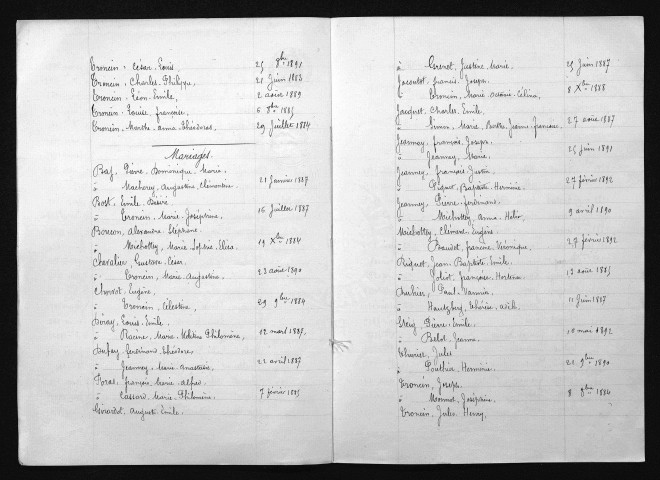 Troncin, César Louis 25 9bre 1891
Troncin, Charles Philippe, 21 Juin 1886
Troncin, Léon Emile, 2 août 1889
Troncin, Louise, françoise, 6 8bre 1885
Troncin, Marthe, Anna Théodoras, 29 Juillet 1884
Mariages.
Pierre Dominique Marie,
à Machurey, Augustine Clémentine 21 Janvier 1887
Bost, Emile Désiré
à Troncin, Marie Joséphine, 16 Juillet 1887
Alexandre Stéphane
à Michottey, Marie Sophie Elisa 19 Xbre 1884
Chevalier, Gustave César
à Troncin, Marie Augustine. 23 août 1890
Eugène,
à Troncin, Célestine, 29 9bre 1884
Louis Emile,
à Racine, Marie Philomène, 12 mars 1887,
Dupay, ferdinand, théodore,
à Jeanney, Marie Anastasie, 22 avril 1887
françois Marie alfred
à Cassard, Marie Philomène, 7 février 1885
Girardot, Auguste Emile,
à Grenot, Justine Marie. 25 Juin 1887
Jacoutot, francis Joseph.
à Troncin, Marie Célina, 8 Xbre 1888
Jacquet, Charles Emile.
à Simon, Marie Berthe Jeanne françoise. 27 août 1887
Jeanney, françois Joseph.
à Jeanney, Marie 25 Juin 1891
Jeanney, françois Justin.
à Piquet, Baptiste Hermine. 27 février 1892
Jeanney, Pierre ferdinand
à Michottey, Anna 9 avril 1890
Michottey, Clément Eugène.
à Baudet, francine Véronique. 27 février 1892
Piquet, Jean Baptiste Emile.
à Joliot, françoise Hortense 12 août 1885
Paul
à thérèse 11 Juin 1887
Pierre Emile.
à Belot, Jeanne 10 mai 1892
Jules
à Pouthier, Hermine. 22 9bre 1890
Troncin, Joseph
à Joséphine. 8 8bre 1884
Troncin, Jules Henry,